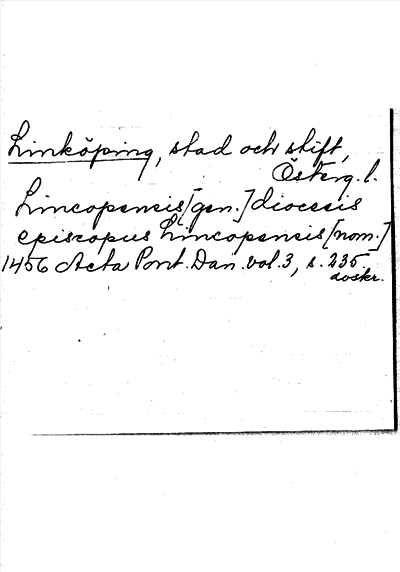 Linköping, stad och stift,
Österg. l.
Lincopensis [gen.] diocesis
episcopus Lincopensis [nom.]
1456 Acta Pont. Dan. vol. 3, s. 235.
avskr.